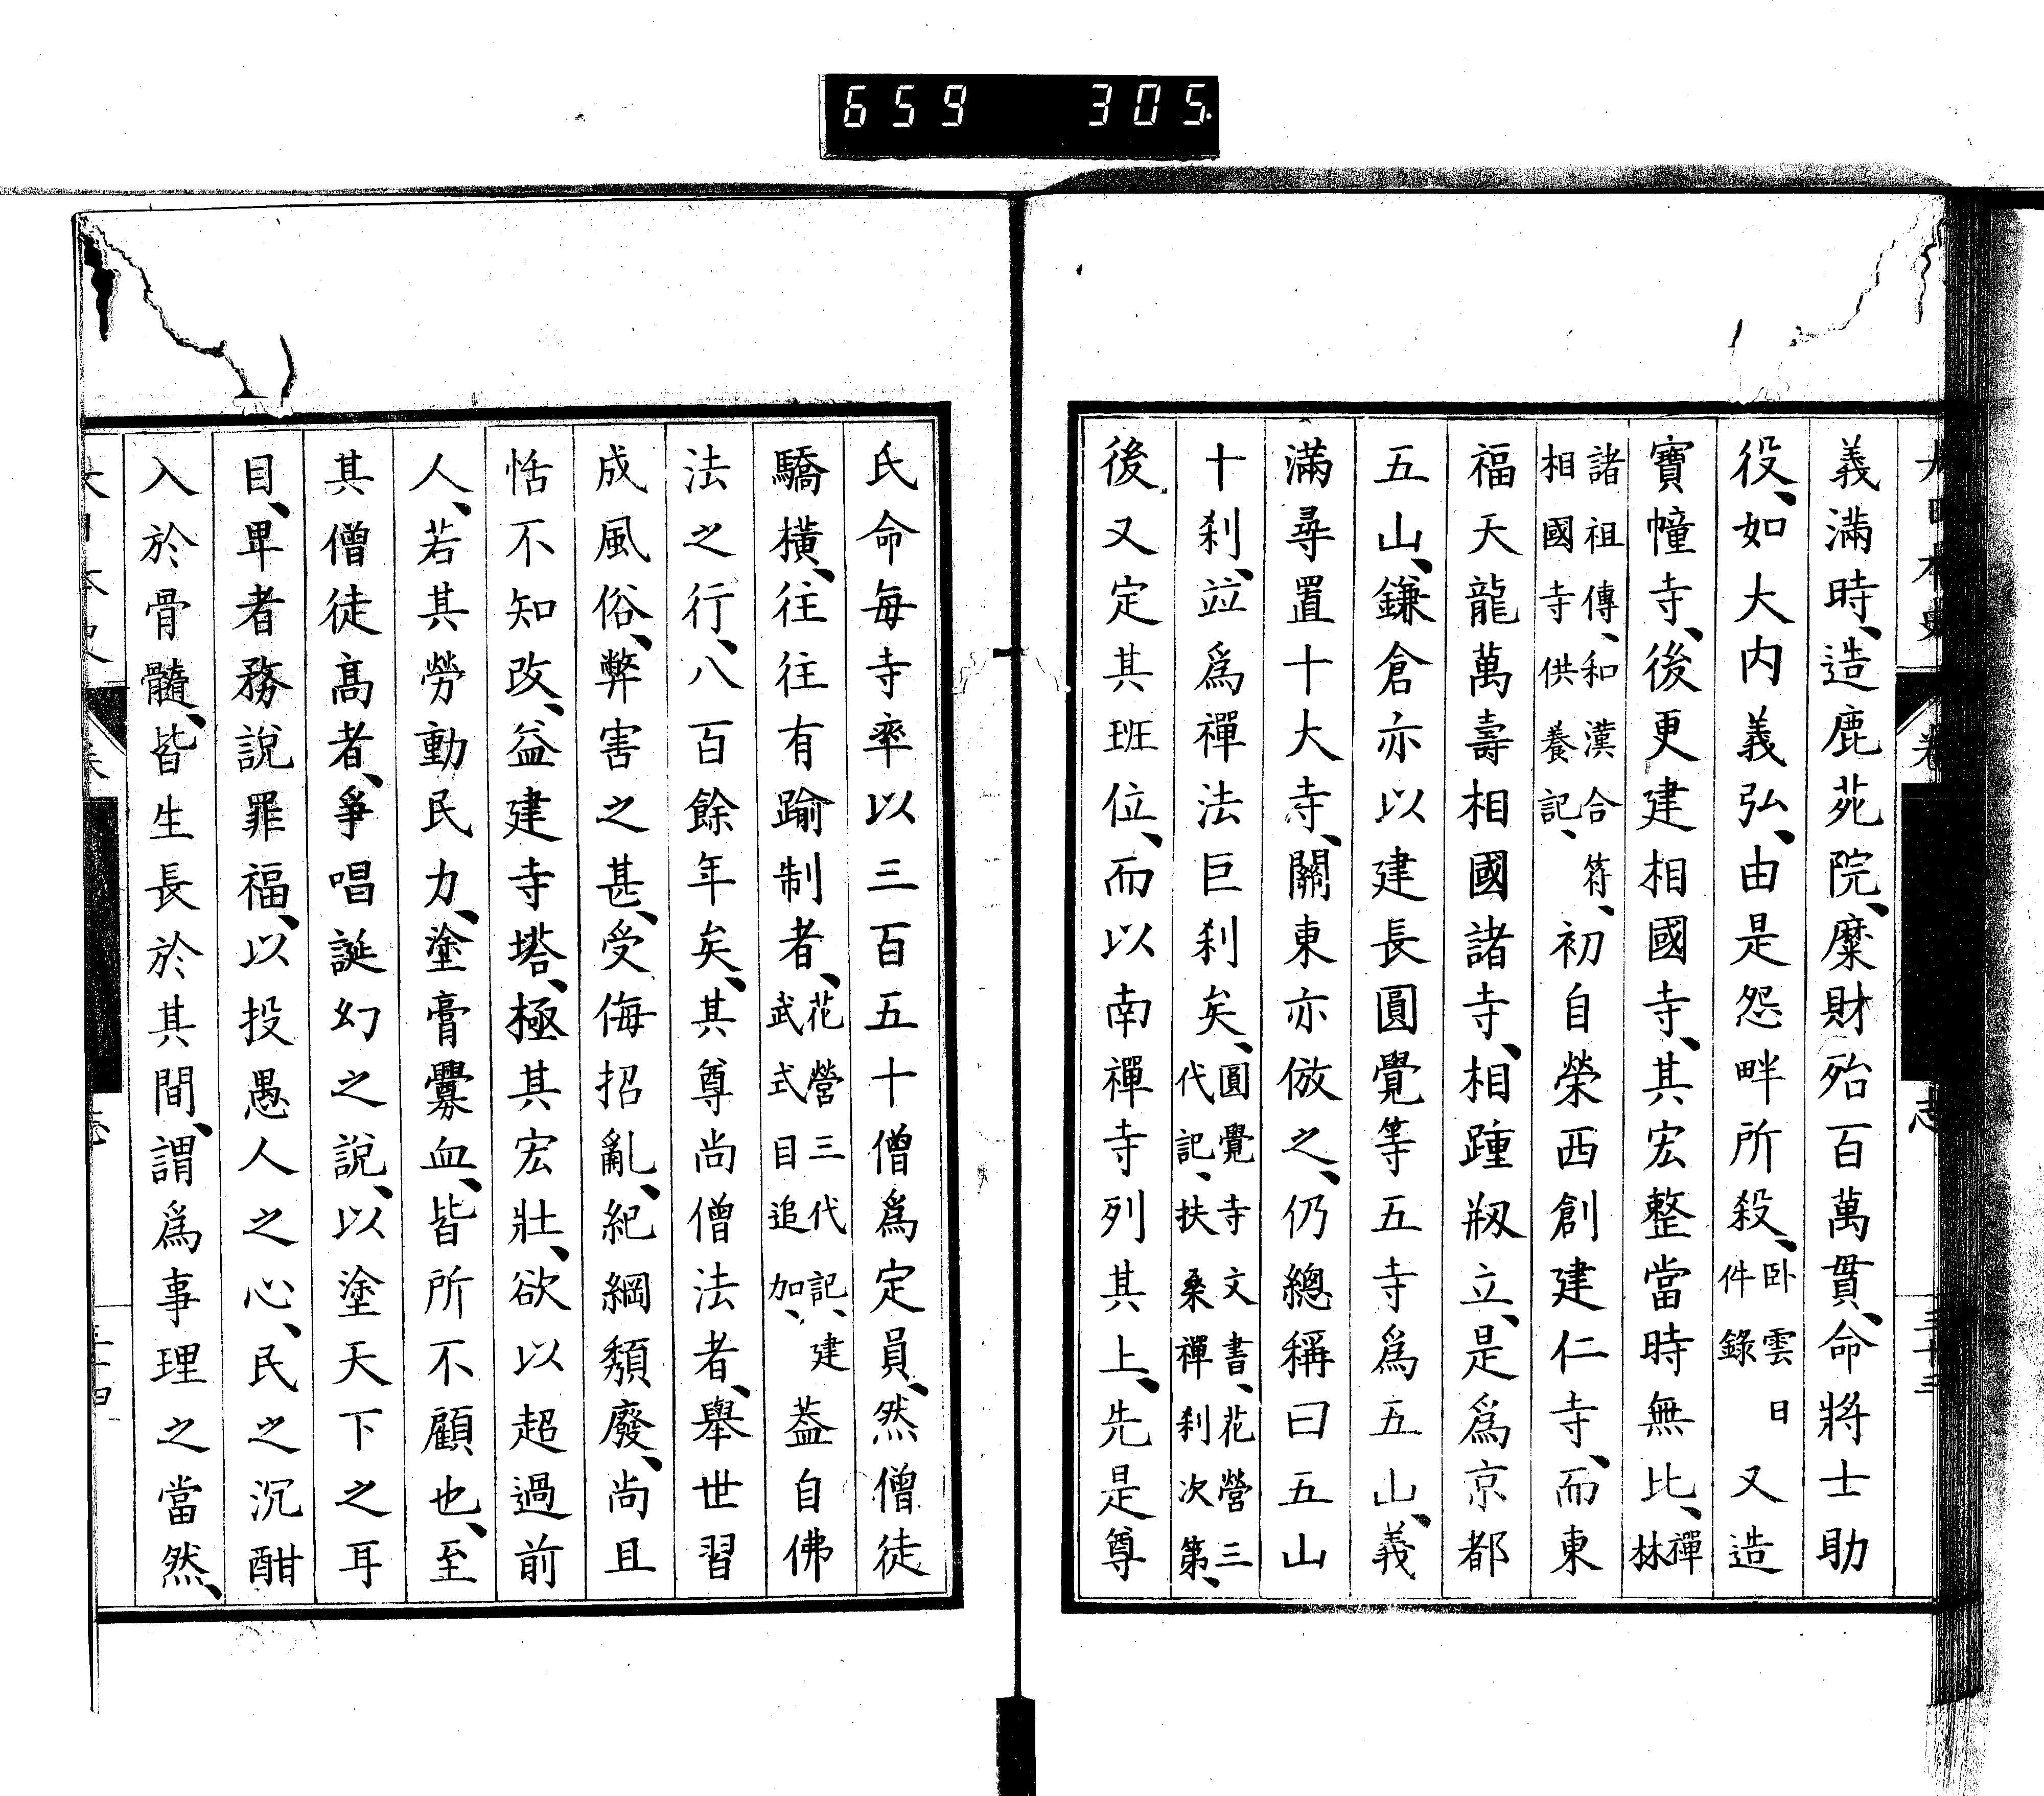 659 305
義滿時、造鹿苑院、糜財殆百萬貫、命將士助
役、如大内義弘、由是怨畔所殺、臥雲日件錄又造
寶幢寺、後更建相國寺、其宏整當時無比、禪林
諸祖傳、和漢合符、相國寺供養記、初自榮西創建仁寺、而東
福天龍萬壽相國諸寺、相踵剏立、是爲京都
五山、鎌倉亦以建長圓覺等五寺爲五山、義
滿尋置十大寺、關東亦倣之、仍總稱曰五山
十刹、竝爲禪法巨刹矣、圓覺寺文書、花營三代記、扶桑禪刹次第、
後又定其班位、而以南禪寺列其上、先是尊
氏命每寺率以三百五十僧爲定員、然僧徒
驕橫、往往有踰制者、花營三代記、建武式目追加、蓋自佛
法之行、八百餘年矣、其尊尚僧法者、舉世習
成風俗、弊害之甚、受侮招亂、紀綱頽廢、尚且
恬不知改、益建寺塔、極其宏壯、欲以超過前
人、若其勞動民力、塗膏釁血、皆所不顧也、至
其僧徒高者、爭唱誕幻之說、以塗天下之耳
目、卑者務說罪福、以投愚人之心、民之沉酣
入於骨髓、皆生長於其間、謂爲事理之當然、